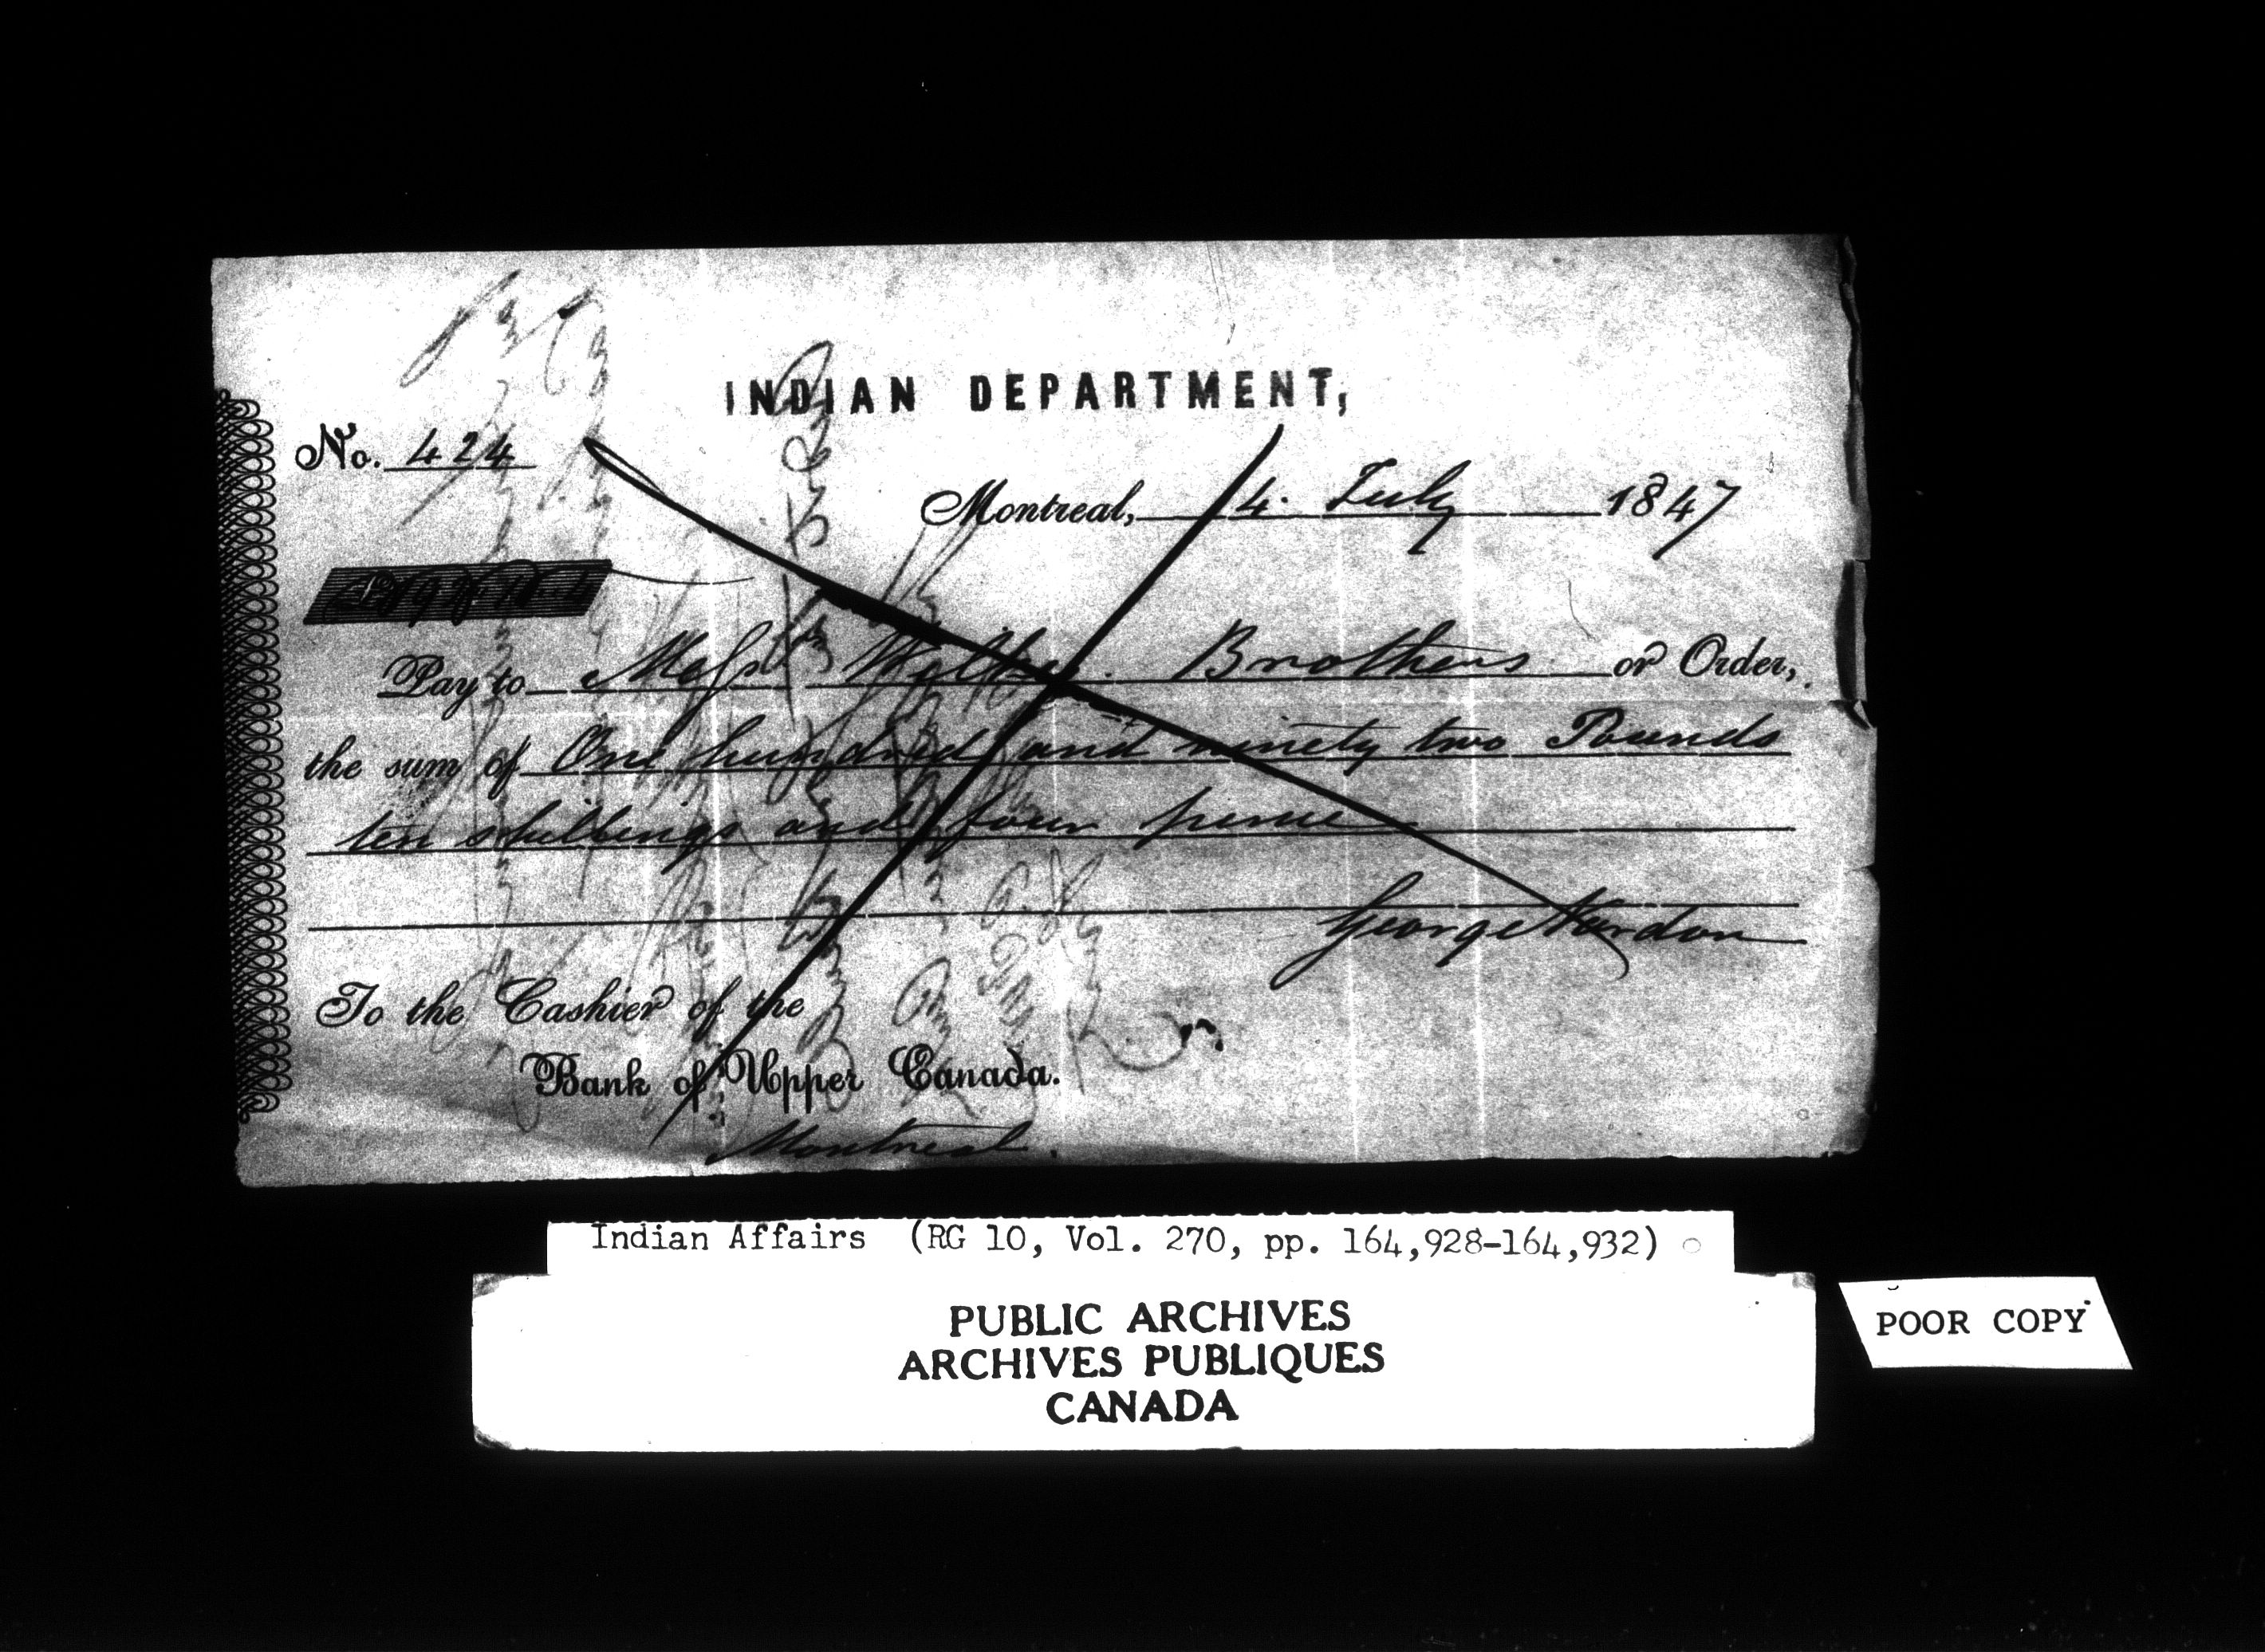 INDIAN DEPARTMENT,
No. 424
Montreal, 4. July 1847
Pay to Mess Brothers or Order,
the sum of One hundred and ninety two Pounds
ten shillings and four pence
George Vardon
To the Cashier of the
Bank of Upper Canada.
Montreal.
Indian Affairs (RG 10, Vol. 270, pp. 164,928-164,932)
PUBLIC ARCHIVES
ARCHIVES PUBLIQUES
CANADA
POOR COPY